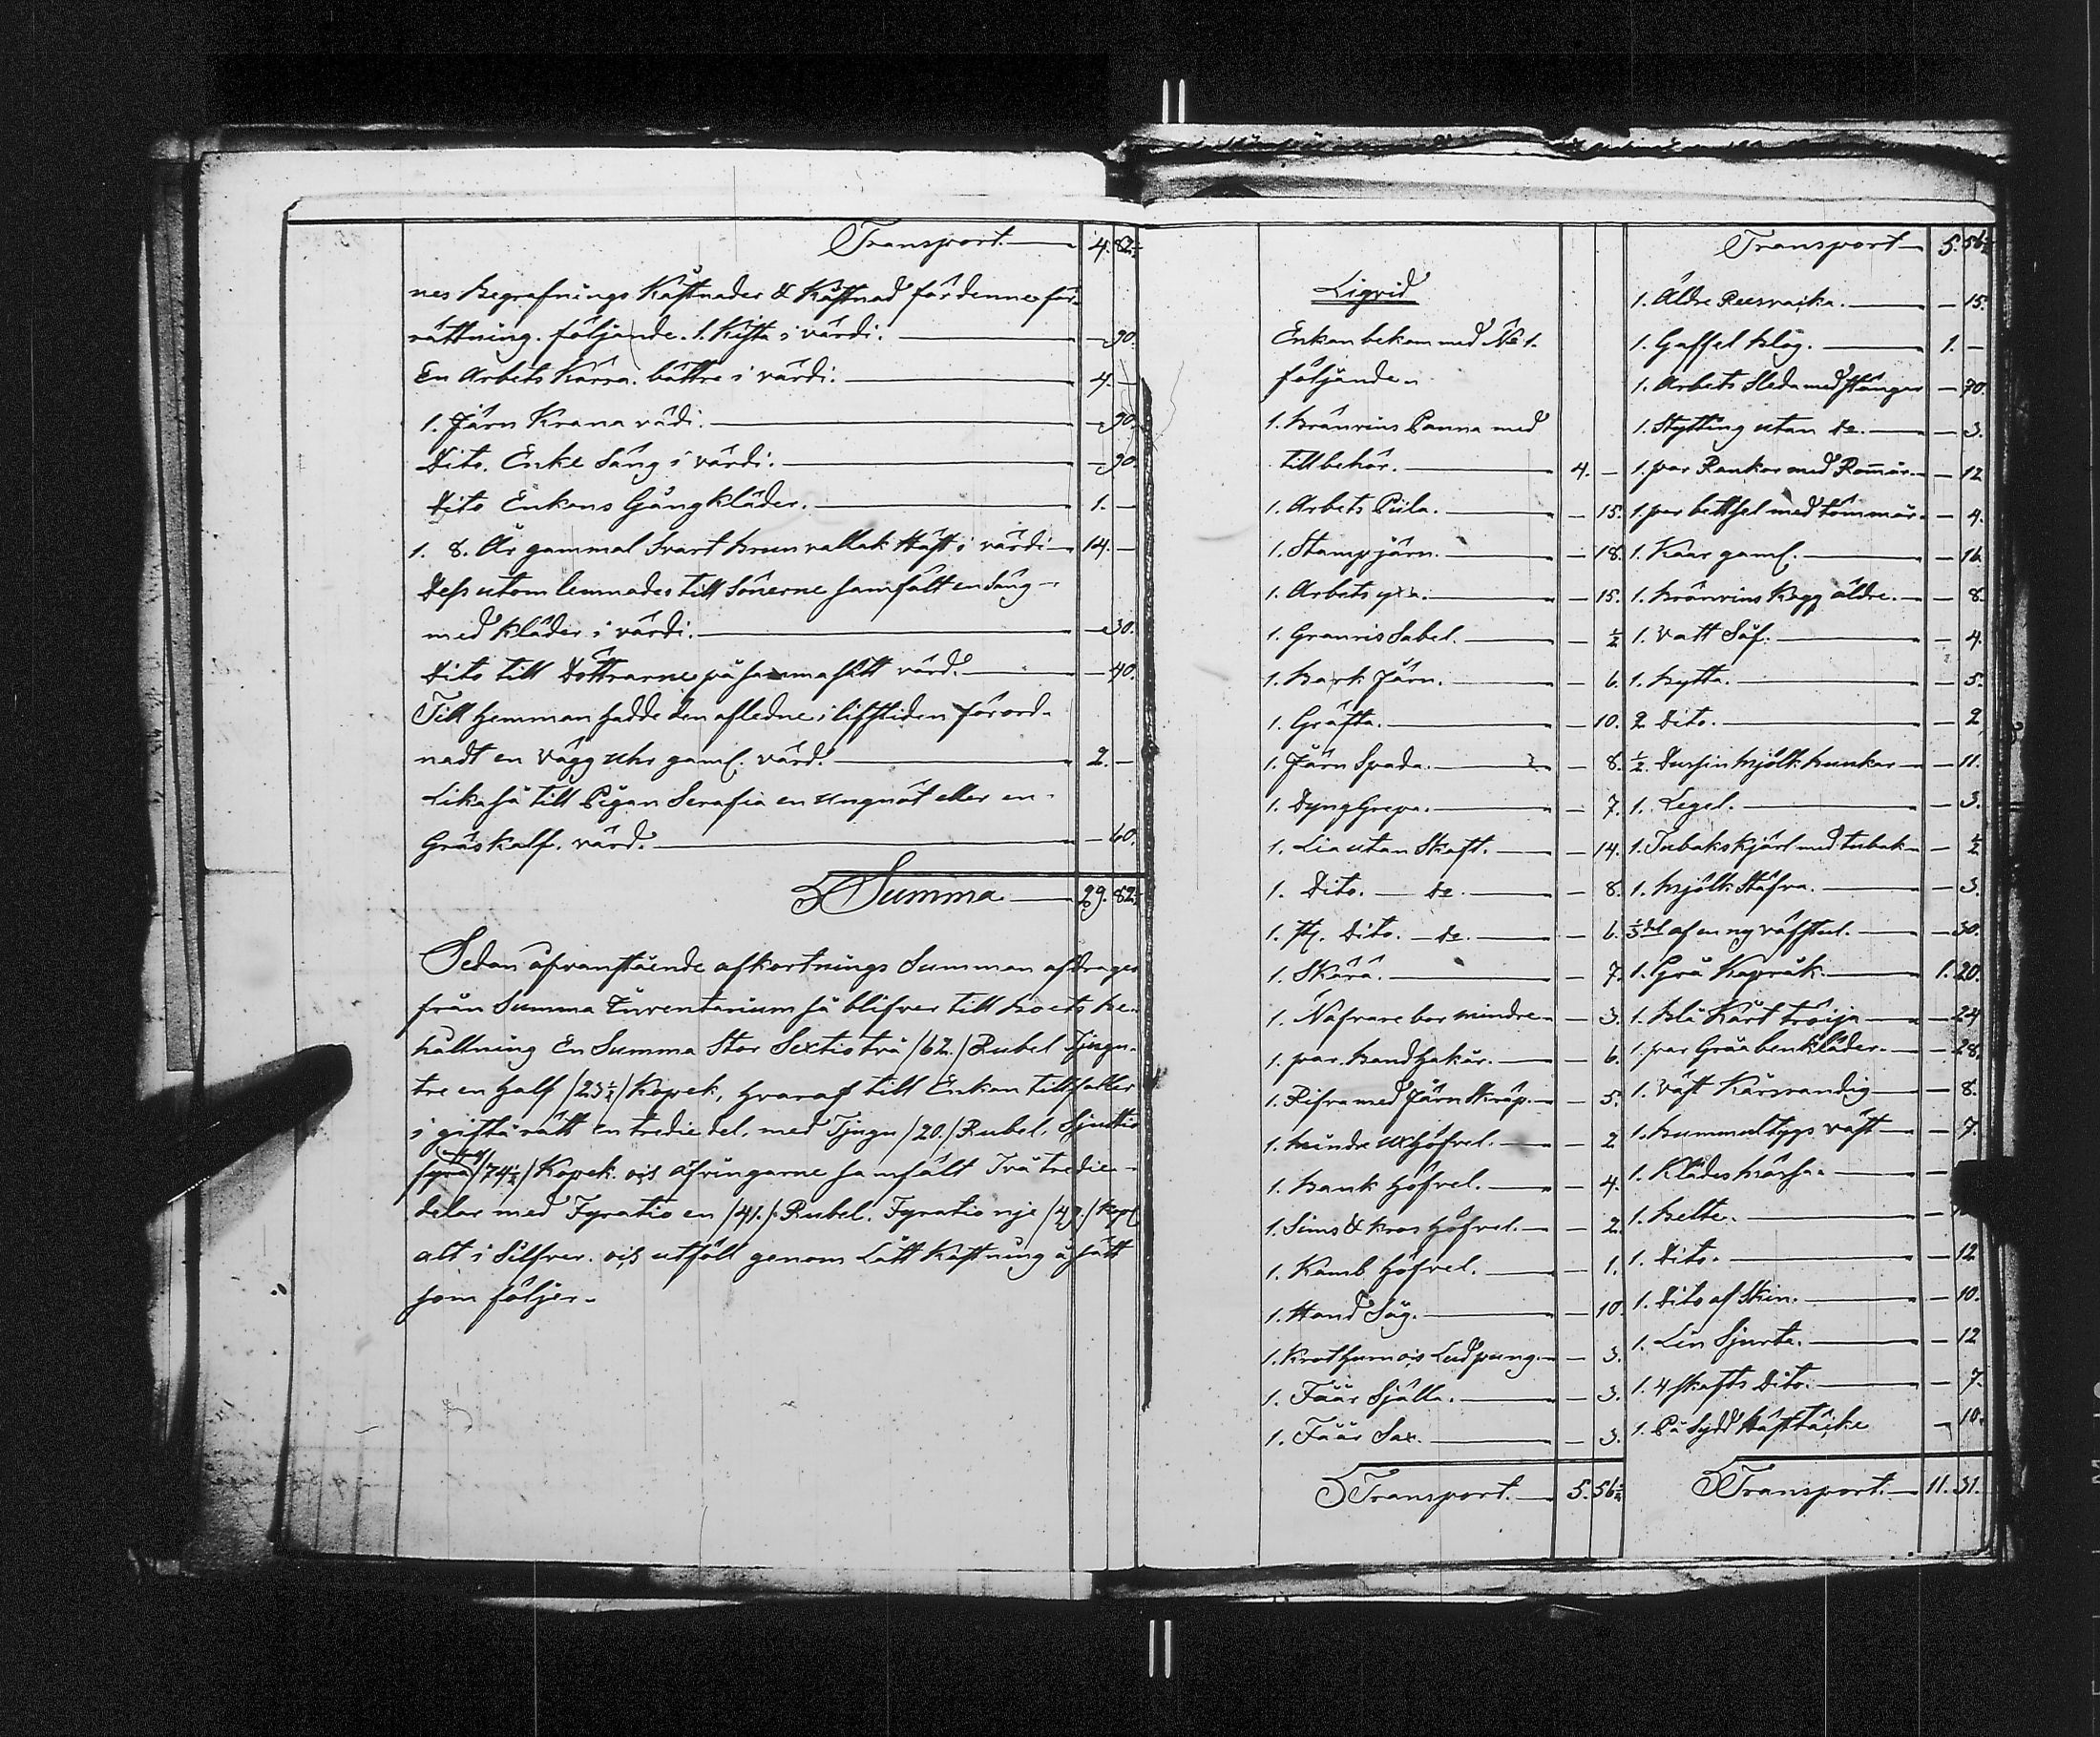 Transport. 4. 82½
nes Begrafnings Kåstnader & Kåstnad för dennes för-
rättning. följande. 1. Kista i värdi. — 90.
En Arbets Kärra. bättre i värdi. 4. —
1. Järn Krana värdi. — 90.
Dito. Enke Säng i värdi. — 90.
Dito Enkans Gångkläder. 1. —
1. 8. År gammal Svart brun vallak Häst i värdi 14. —
Dess utom lemnades till Sönerne samfält en Säng
med kläder i värdi. — 30.
Dito till Döttrarne på samma sätt värd. — 40.
Till Hemman hadde den afledne i lifstiden förord-
nadt en Vägg uhr gaml. värd. 2. —
Likaså till Pigan Serafia en ungnöt eller en
Gräskalf. värd. — 60.
Summa 29. 82½
Sedan ofvanstående afkortnings Summan afdrages
från Summa Inventarium så blifver till boets be-
hållning En Summa Stor Sextio två /62./ Rubel Tjugu-
tre en half /23½/ Kopek, hvaraf till Enkan tillfaller
i giftorätt en tredie del, med Tjugu /20./ Rubel. Sjuttio
fyra /74½/ Kopek. ois afvingarne samfält Två tredie-
delar med Fyratio en /41./ Rubel. Fyratio nje /49./ Kop
alt i Silfver. ois utföll genom Lått Kastning å sätt
som följer.
Ligvid
Enkan bekom med No 1.
följande.
1. Bränvins Panna med
tillbehör. 4. —
1. Arbets Piila. — 15.
1. Stamp järn. — 18.
1. Arbets yxa. — 15.
1. Granris Sabel. — ½
1. Bark Järn. — 6.
1. Gräfta. — 10.
1. Järn Spada. — 8.
1. Dyng Grepa. — 7.
1. Lia utan Skaft. — 14.
1. Dito. — do — 8.
1. Dito. — do. — 6.
1. Skära. — 7.
1. Nafvare bor mindre — 3.
1. par. Band hakar. — 6.
1. Rifva med Järn Skråp. — 5.
1. Mindre Höfvel. — 2
1. Bank Höfvel. — 4.
1. Sims & Kros Höfvel. — 2.
1. Kamb Höfvel. — 1.
1. Hand Såg. — 10.
1. Krathorn ois Ludpung. — 3.
1. Fåår Själla. — 3.
1. Fåår Sax. — 3.
Transport. 5. 56½
Transport 5. 56½
1. Äldre Reesraika. — 15.
1. Gaffel Plog. 1. —
1. Arbets Sleda med stänger — 30.
1. Stytting utan do. — 3.
1. par Rankor med Romär. — 12
1. par bettsel med tömmar. — 4.
1. Kaar gaml. — 16
1. Bränvins Kagg äldre. — 8.
1. Vatt Så. — 4.
1. Bytta. — 5.
2 Dito. — 2
½. Dussin Mjölk bunkar — 11.
1. Legel. — 3.
1. Tubaks kjärl med tubak — ½
1. Mjölk Stäfva. — 3.
⅓del af en ny väfstul. — 30.
1. Grå Kapråk. 1. 20.
1. Blå Kårt tröija — 24
1. par Gråa benkläder. — 28.
1. väst Kårsrandig — 8.
1. Bummultygs väst — 7.
1. Klädes Mårssa. —
1. Belte. —
1. Dito. — 12
1. Dito af Skin. — 10.
1. Lin Sjurta. — 12
1. 4 skafts Dito. — 7.
1. På Sydd Hästtäcke — 10.
Transport. 11. 31.